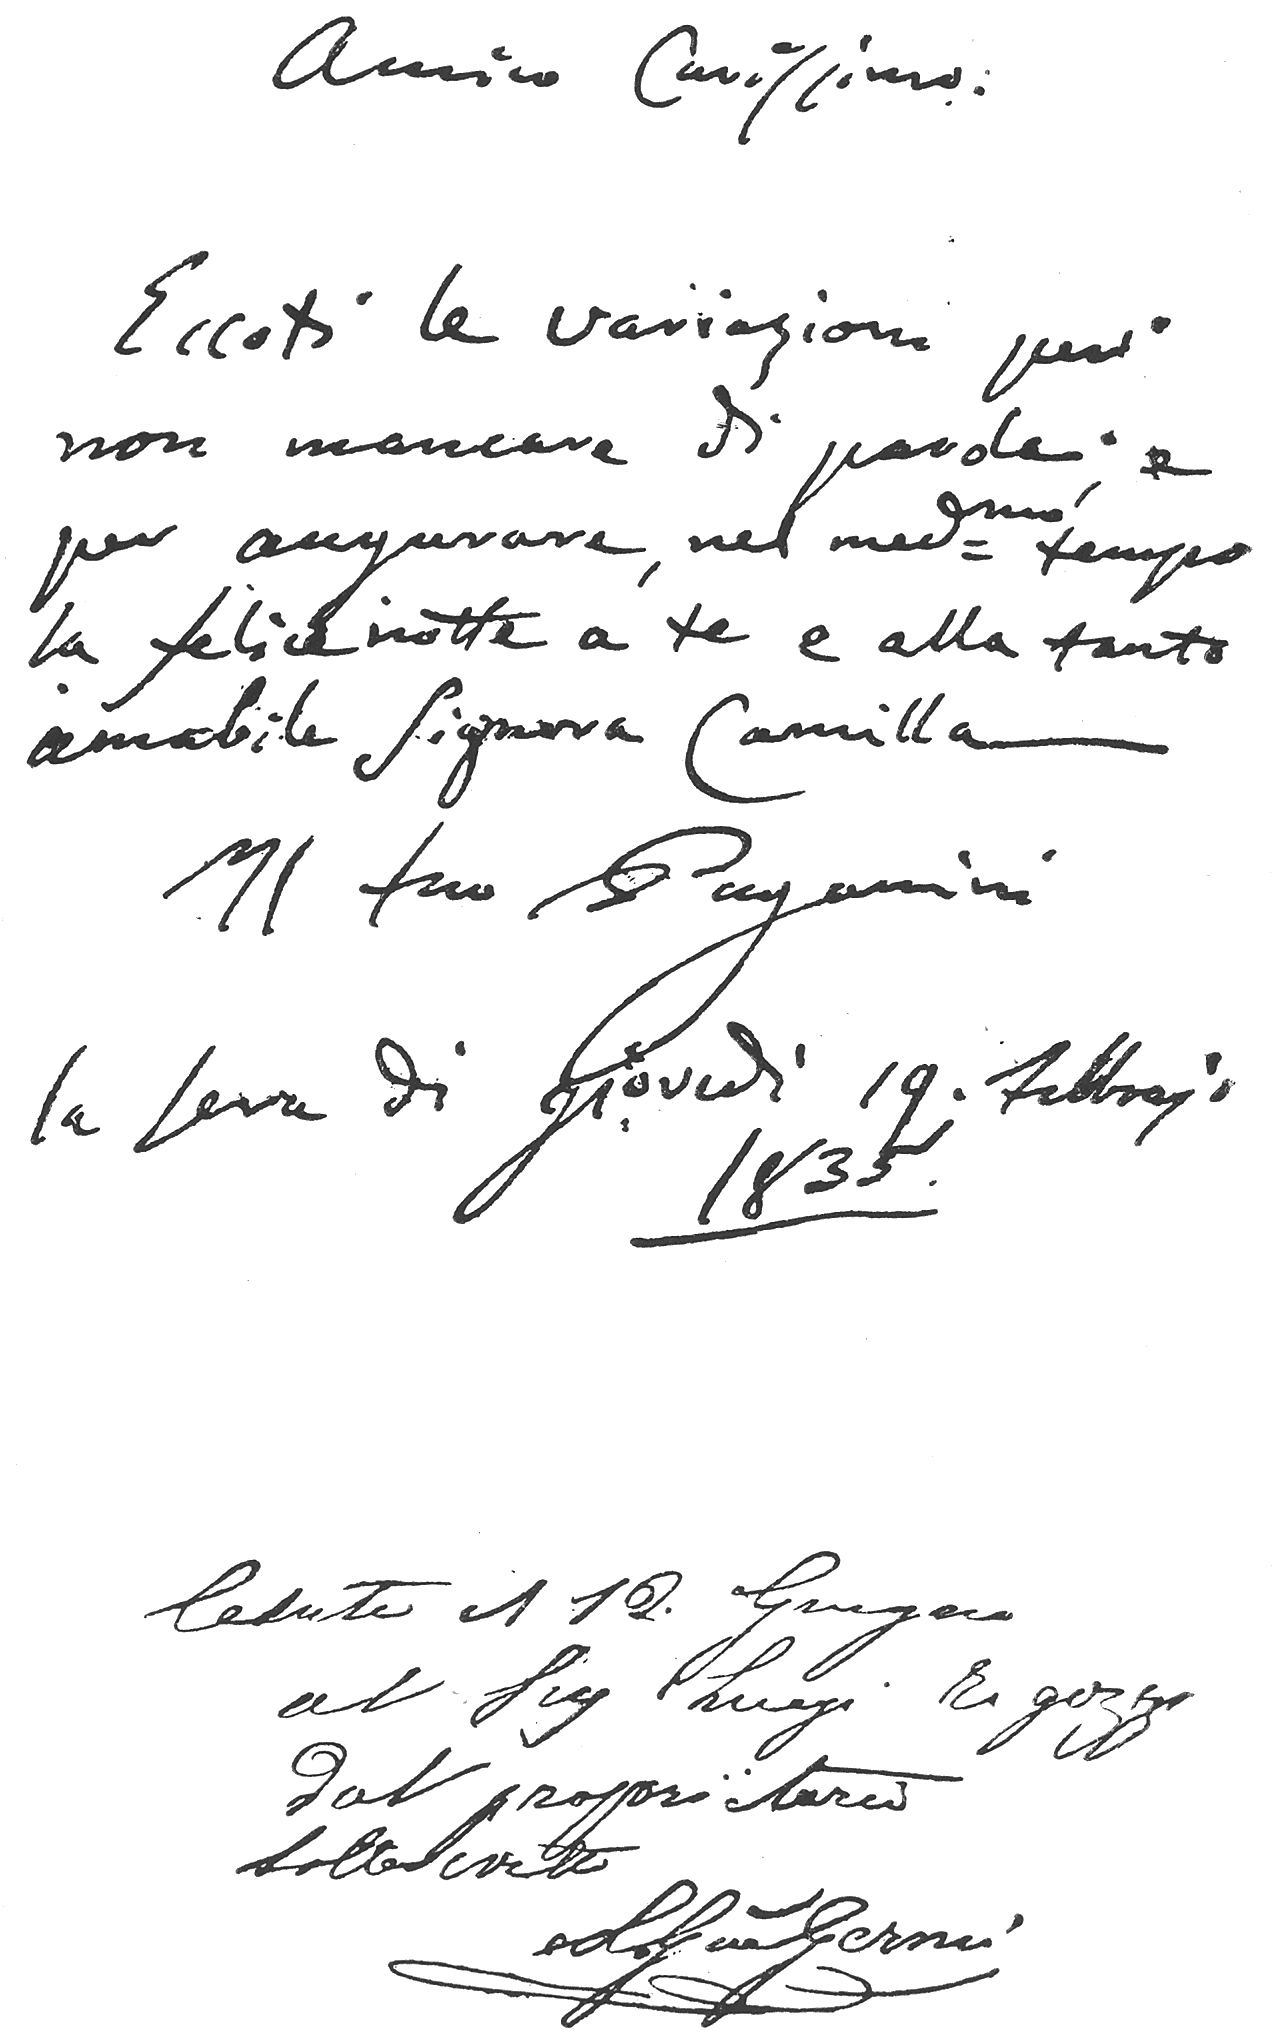 Amico Carissimo:
Eccoti le variazioni per
non mancare di parola; e
per augurare, nel med=mo tempo
la felice notte a te e alla tanto
amabile Signora Camilla
Il tuo Paganini
la sera di Giovedì 19. febbrajo
1835.
Ceduto il 12. Giugno
al Sig Luigi
dal proprietario
sottoscritto
Germi